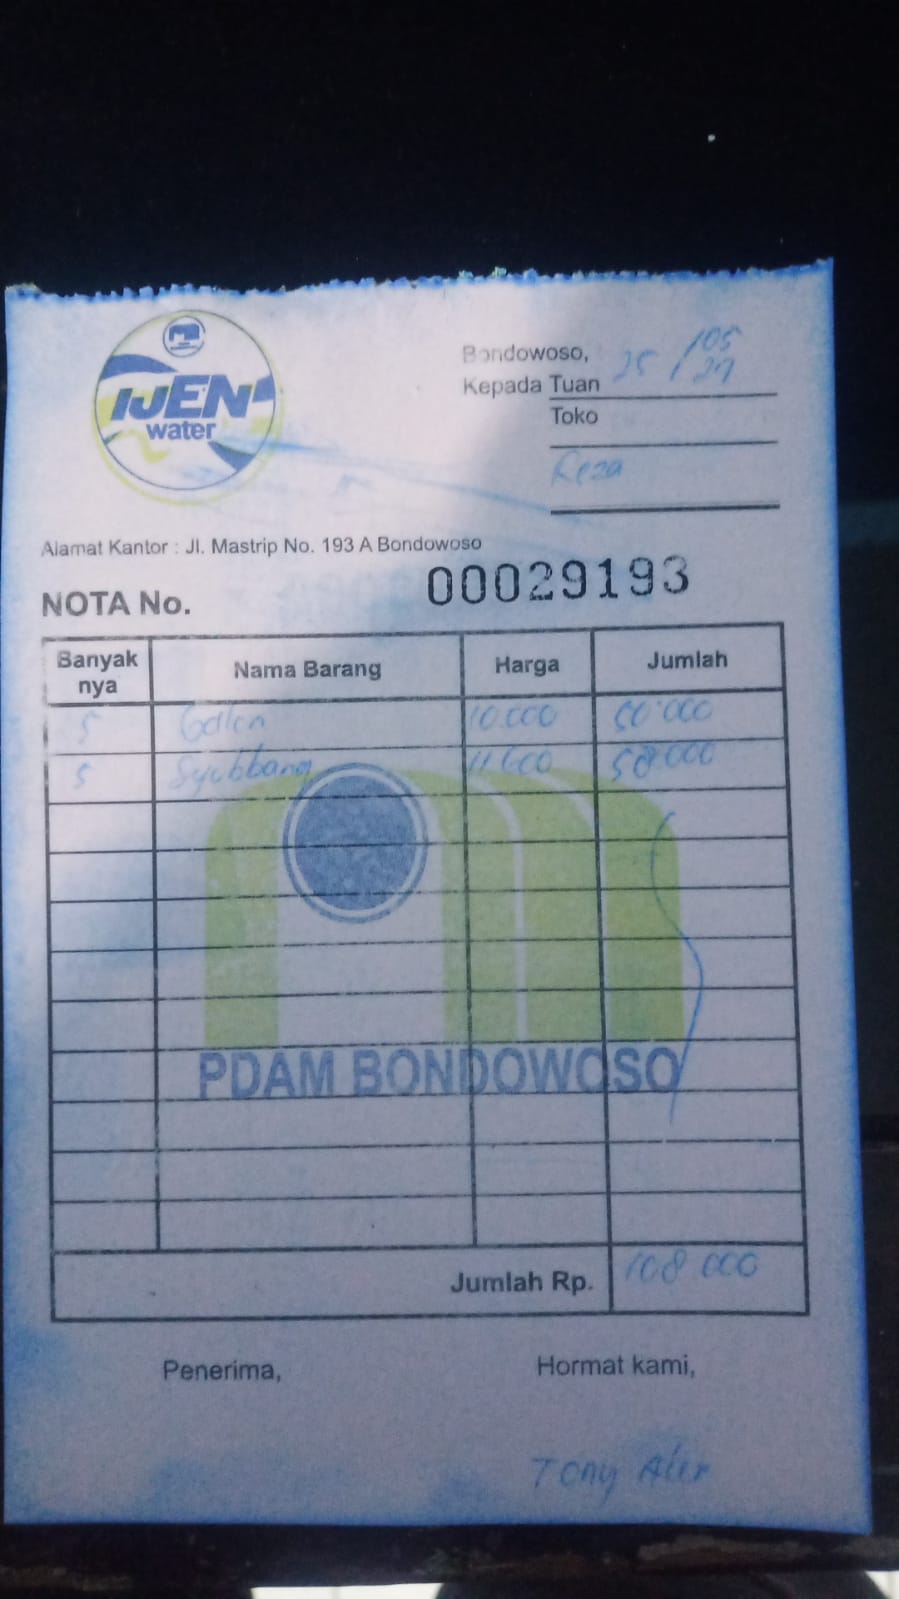 IJEN
water
Bondowoso, 25 /05
Kepada Tuan
Toko
Reza
Alamat Kantor : Jl. Mastrip No. 193 A Bondowoso
NOTA No. 00029193
Banyak nya Nama Barang Harga Jumlah
5 Galon 10.000 50.000
5 Syubbang 11.600 58.000
PDAM BONDOWOSO
Jumlah Rp. 108 000
Penerima, Hormat kami,
Tony